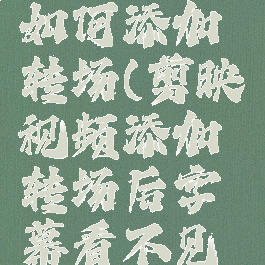 如何添加
转场(剪映
视频添加
转场后字
幕看不见